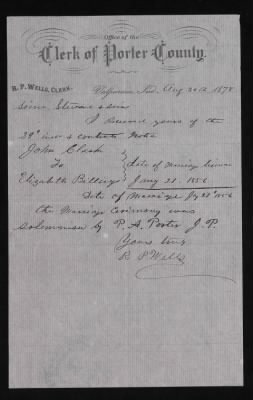 Office of the
Clerk of Porter County.
R. P. WELLS, CLERK.
Valparaiso, Ind. Aug 30th 1878
I received yours of the
29th & contents
John Clark
To date of Marriage license
Elizabeth Billings 28 1856
Date of Marriage 28th 1856
the Marriage Ceremony was
solemnized by P. A. Porter J. P.
Yours truly
R P Wells